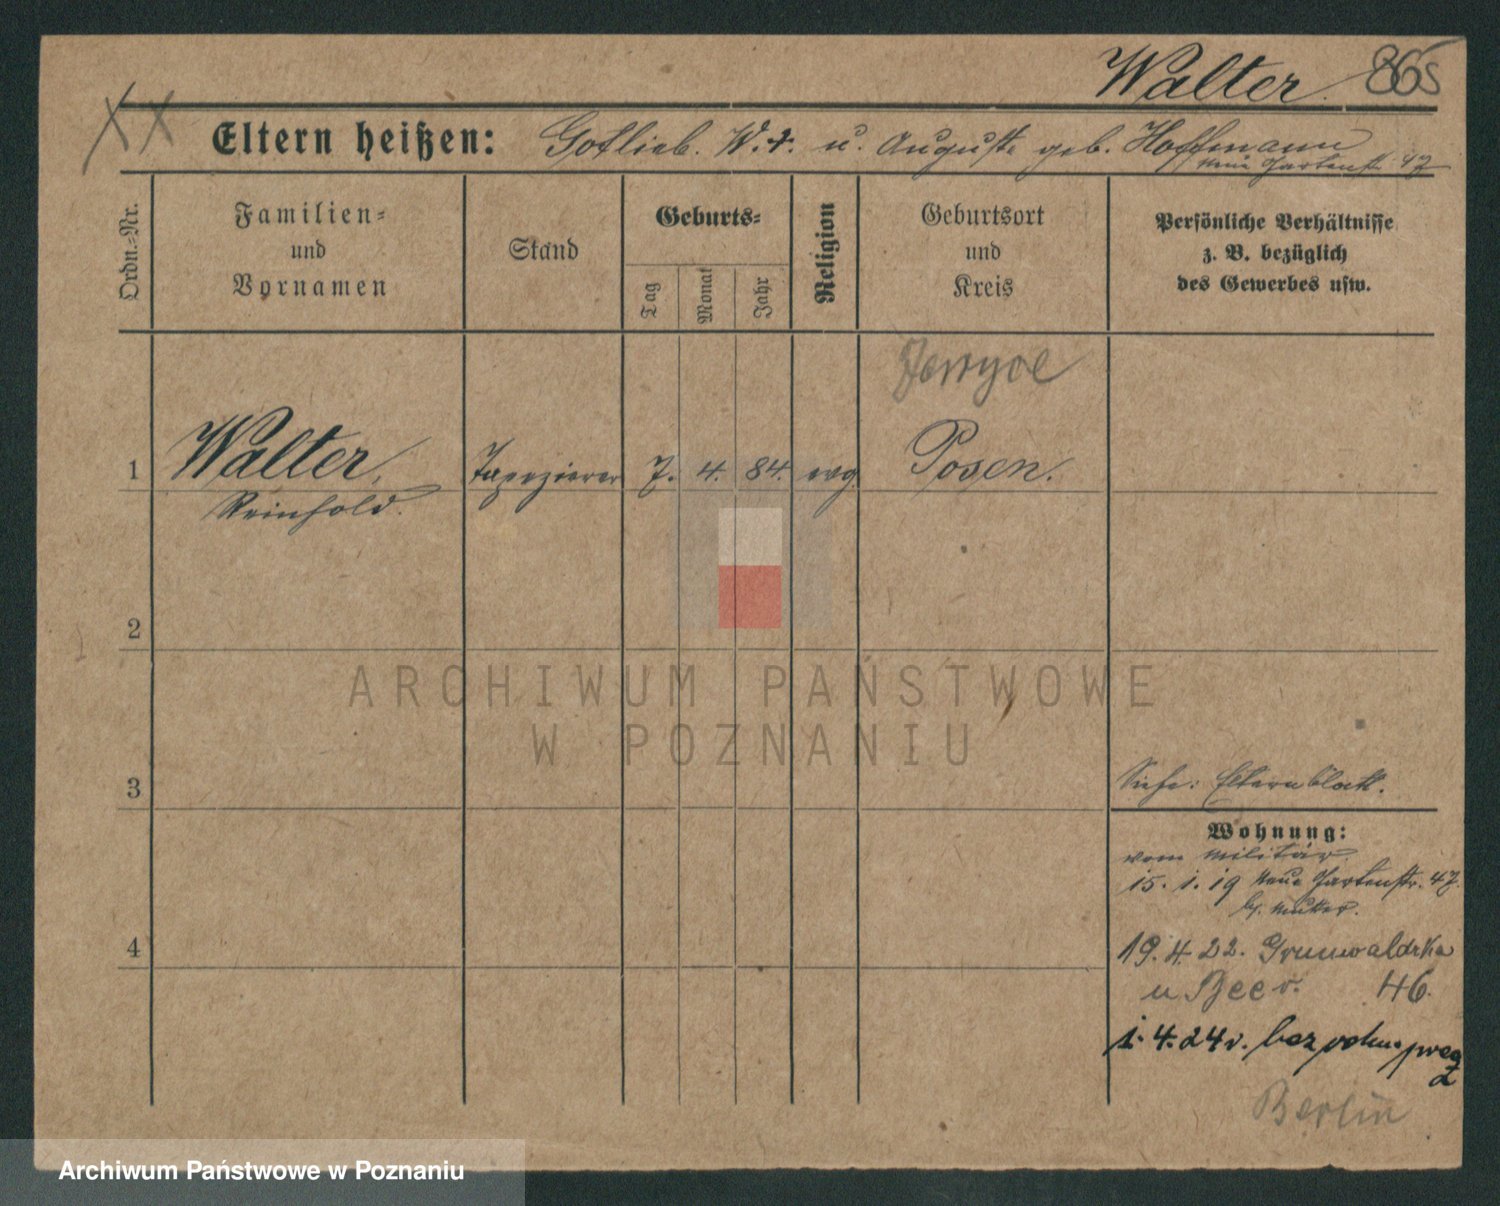 Walter. 865
Eltern heißen: Gottlieb. W. †. u. Auguste geb. Hoffmann
Neue Gartenstr. 47
Ordn.-Nr.
Familien-
und
Vornamen
Stand
Geburts-
Tag
Monat
Jahr
Religion
Geburtsort
und
Kreis
Persönliche Verhältnisse
z. B. bezüglich
des Gewerbes usw.
1 Walter, Tapezierer 7. 4. 84. evg Posen.
Reinhold.
2
ARCHIWUM PAŃSTWOWE
W POZNANIU
3
Siehe: Elternblatt.
Wohnung:
vom Militär.
15. 1. 19 Neue Gartenstr. 47.
b. Mutter.
4
19. 4. 22. Grunwaldzka
u Beer. 46.
1. 4. 24 r. bez
Berlin
Archiwum Państwowe w Poznaniu